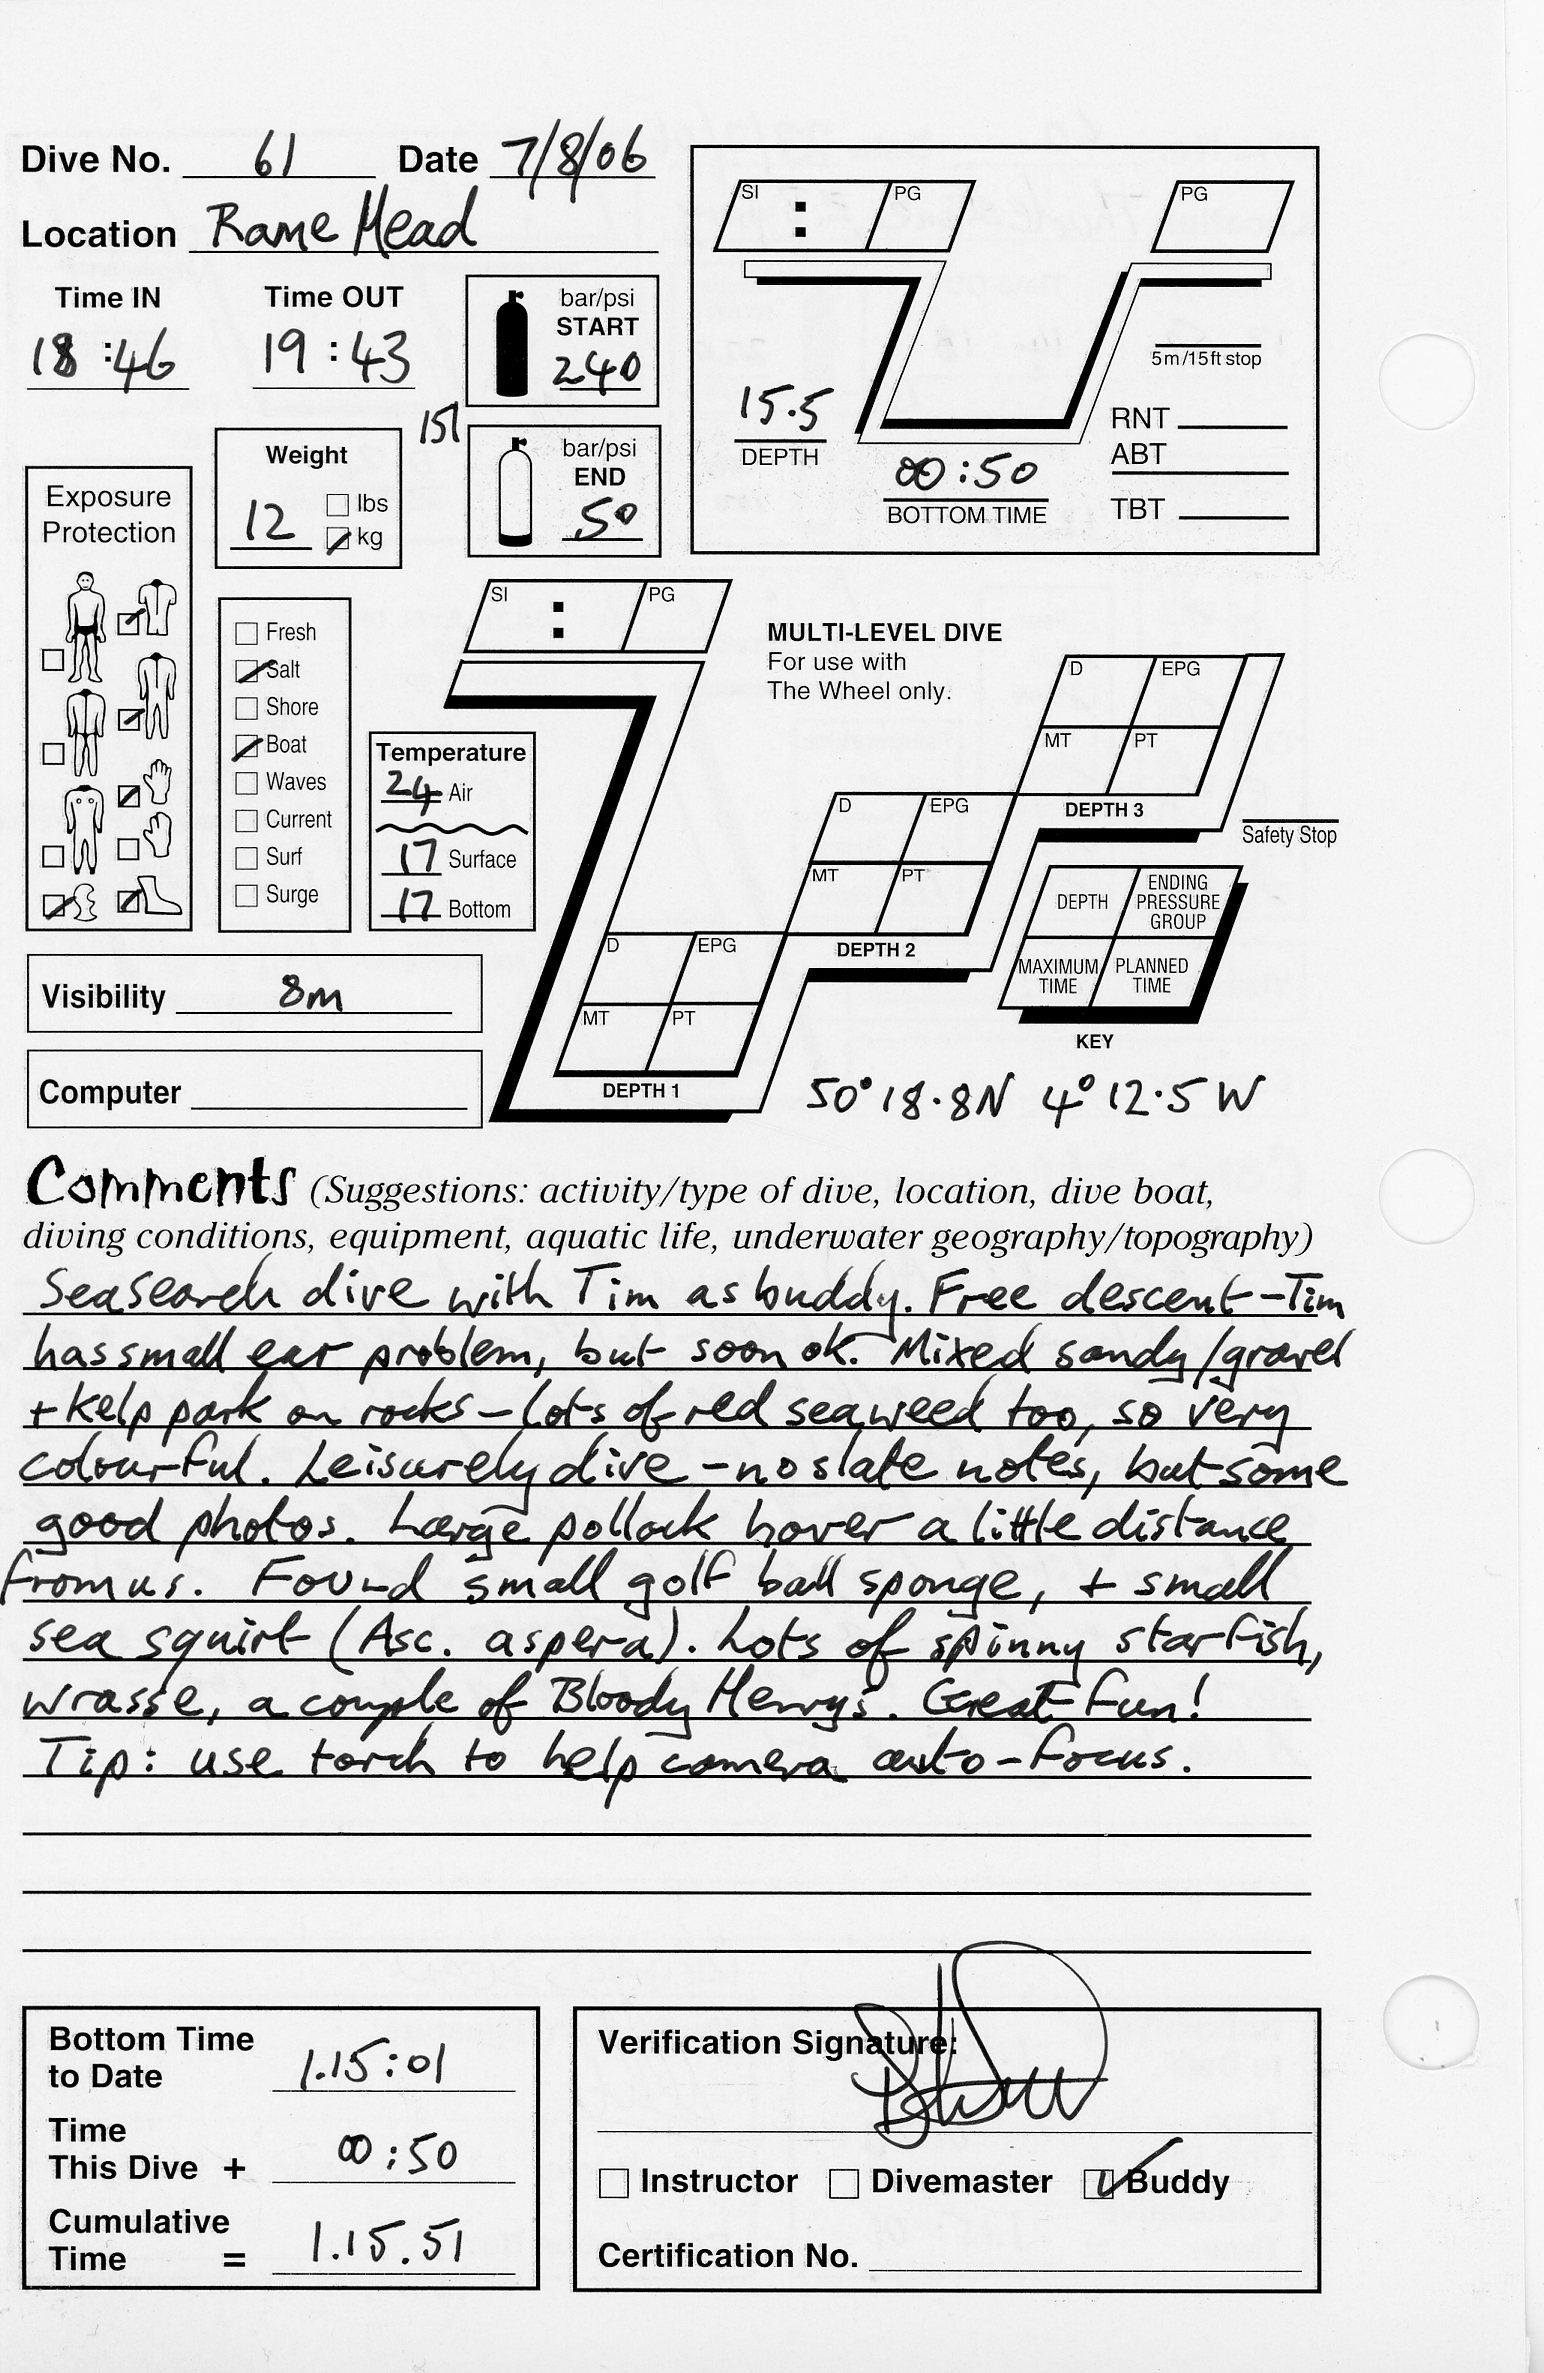 Dive No. 61 Date 7/8/06
Location Rame Head
Time IN Time OUT
18:46 19:43
bar/psi
START
240
15l
bar/psi
END
50
Weight
12 lbs
kg
Exposure
Protection
Fresh
Salt
Shore
Boat
Waves
Current
Surf
Surge
Temperature
24 Air
17 Surface
17 Bottom
Visibility 8m
Computer
SI : PG PG
15.5
DEPTH
00:50
BOTTOM TIME
5m/15ft stop
RNT
ABT
TBT
SI : PG
MULTI-LEVEL DIVE
For use with
The Wheel only.
D EPG
MT PT
DEPTH 3
Safety Stop
D EPG
MT PT
DEPTH 2
D EPG
MT PT
DEPTH 1
DEPTH ENDING PRESSURE GROUP
MAXIMUM TIME PLANNED TIME
KEY
50° 18.8N 4° 12.5W
Comments (Suggestions: activity/type of dive, location, dive boat,
diving conditions, equipment, aquatic life, underwater geography/topography)
Seasearch dive with Tim as buddy. Free descent - Tim
has small ear problem, but soon ok. Mixed sandy/gravel
+ kelp park on rocks - lots of red seaweed too, so very
colourful. Leisurely dive - no slate notes, but some
good photos. Large pollack hover a little distance
from us. Found small golf ball sponge, + small
sea squirt (Asc. aspera). Lots of spinny starfish,
wrasse, a couple of Bloody Henrys. Great fun!
Tip: use torch to help camera auto-focus.
Bottom Time
to Date 1.15:01
Time
This Dive + 00:50
Cumulative
Time = 1.15.51
Verification Signature:
Instructor Divemaster Buddy
Certification No.